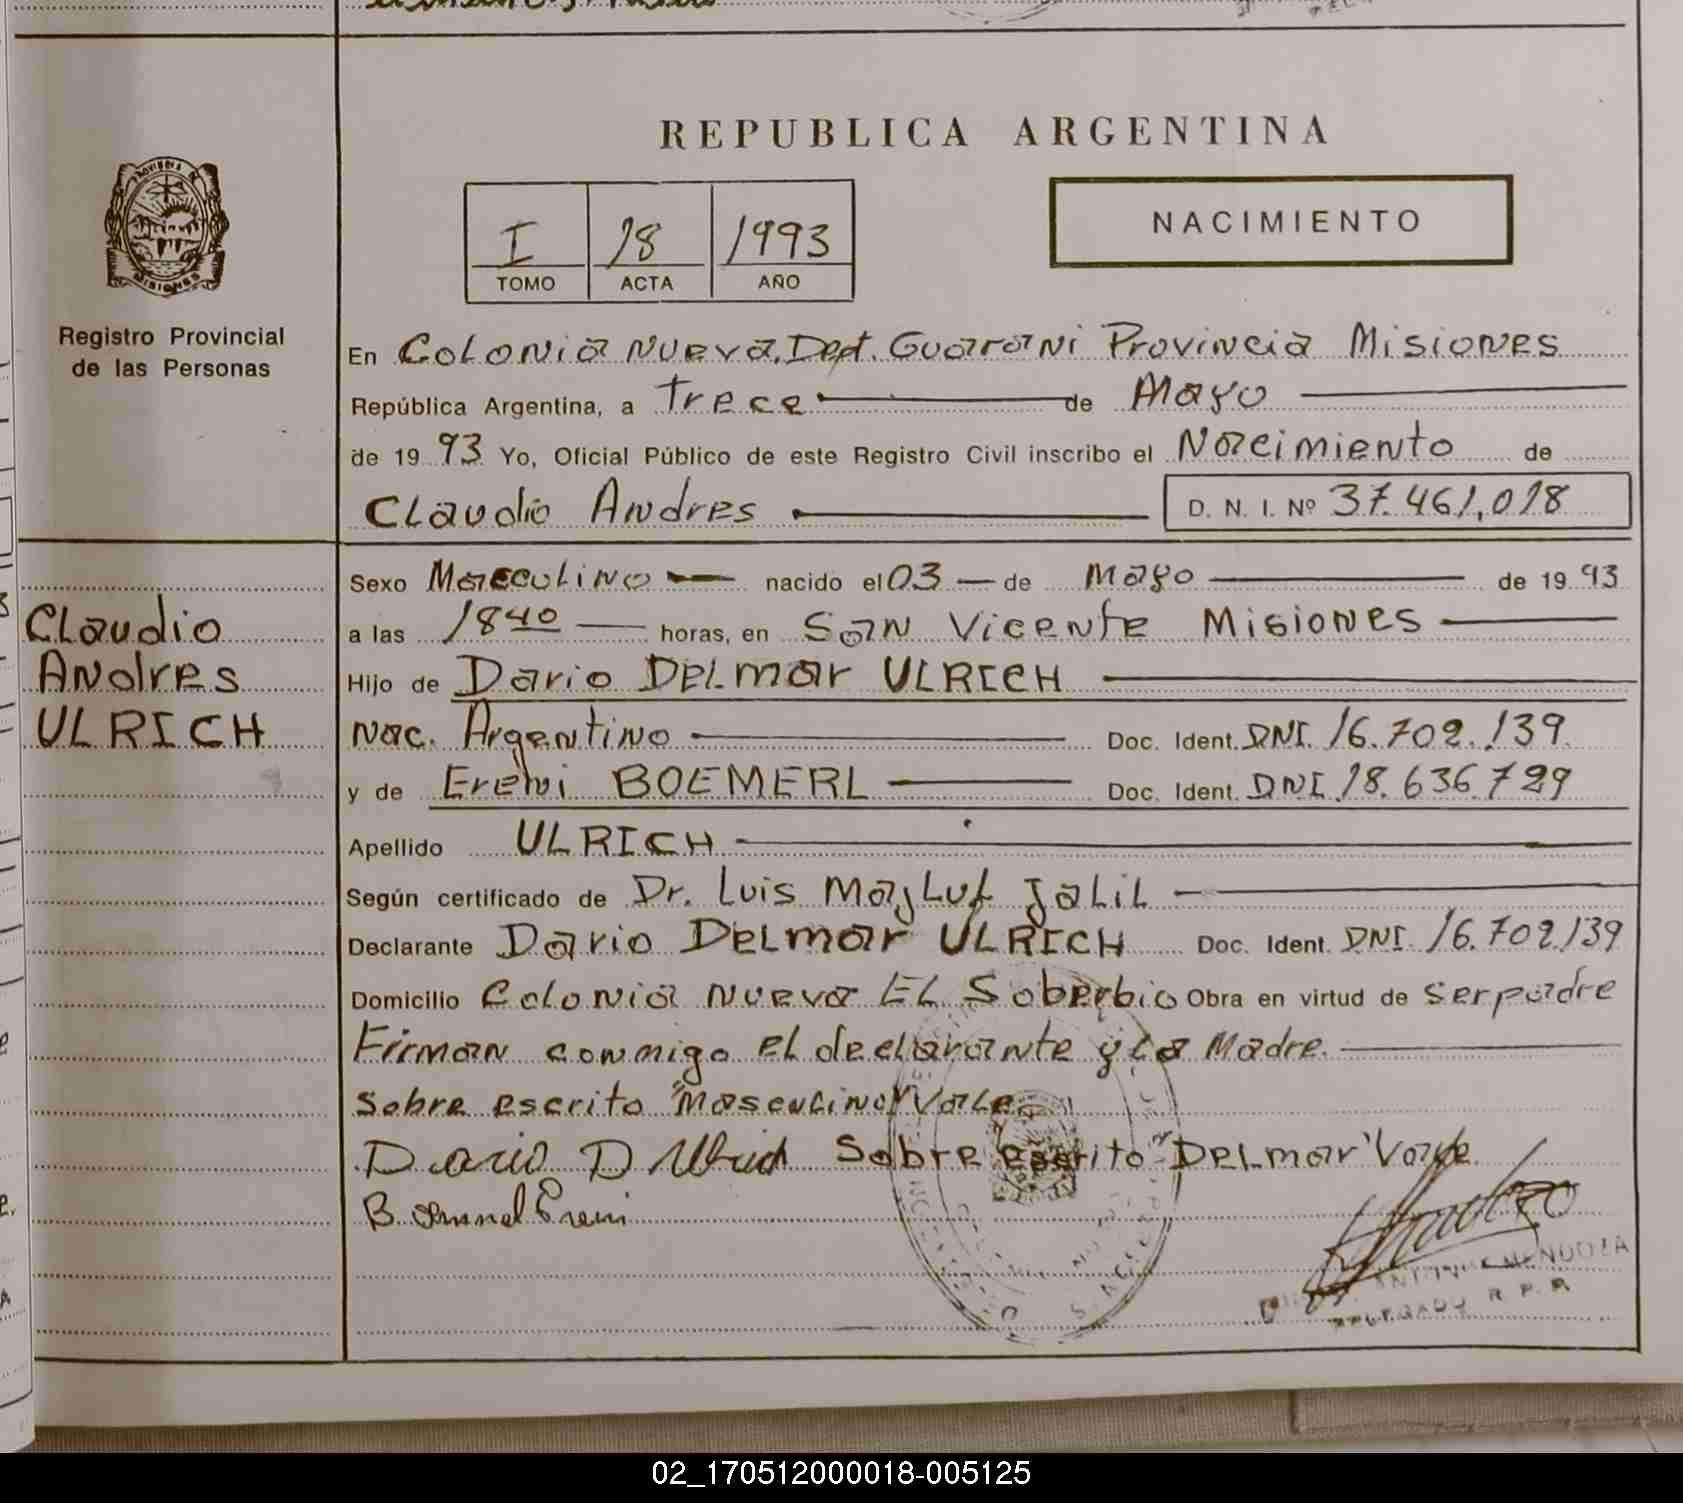 REPUBLICA ARGENTINA
I 18 1993
TOMO ACTA AÑO
NACIMIENTO
PROVINCIA
MISIONES
Registro Provincial
de las Personas
En Colonia Nueva, Dept. Guarani Provincia Misiones
República Argentina, a Trece de Mayo
de 19 93 Yo, Oficial Público de este Registro Civil inscribo el Nacimiento de
Claudio Andres D. N. I. Nº 37.461,018
Claudio
Andres
ULRICH
Sexo Masculino nacido el 03 de Mayo de 19 93
a las 1840 horas, en San Vicente Misiones
Hijo de Dario Delmar ULRICH
Nac. Argentino Doc. Ident. DNI. 16.702.139
y de Ereni BOEMERL Doc. Ident. DNI. 18.636.729
Apellido ULRICH
Según certificado de Dr. Luis Majluf Jalil
Declarante Dario Delmar ULRICH Doc. Ident. DNI. 16.702.139
Domicilio Colonia Nueva El Soberbio Obra en virtud de ser padre
Firman conmigo el declarante y la Madre.
Sobre escrito "Masculino" Vale
Dario D Ulrich Sobre escrito "Delmar" Vale
B Ereni
MENDOZA
DELEGADO R. P. P.
02_170512000018-005125